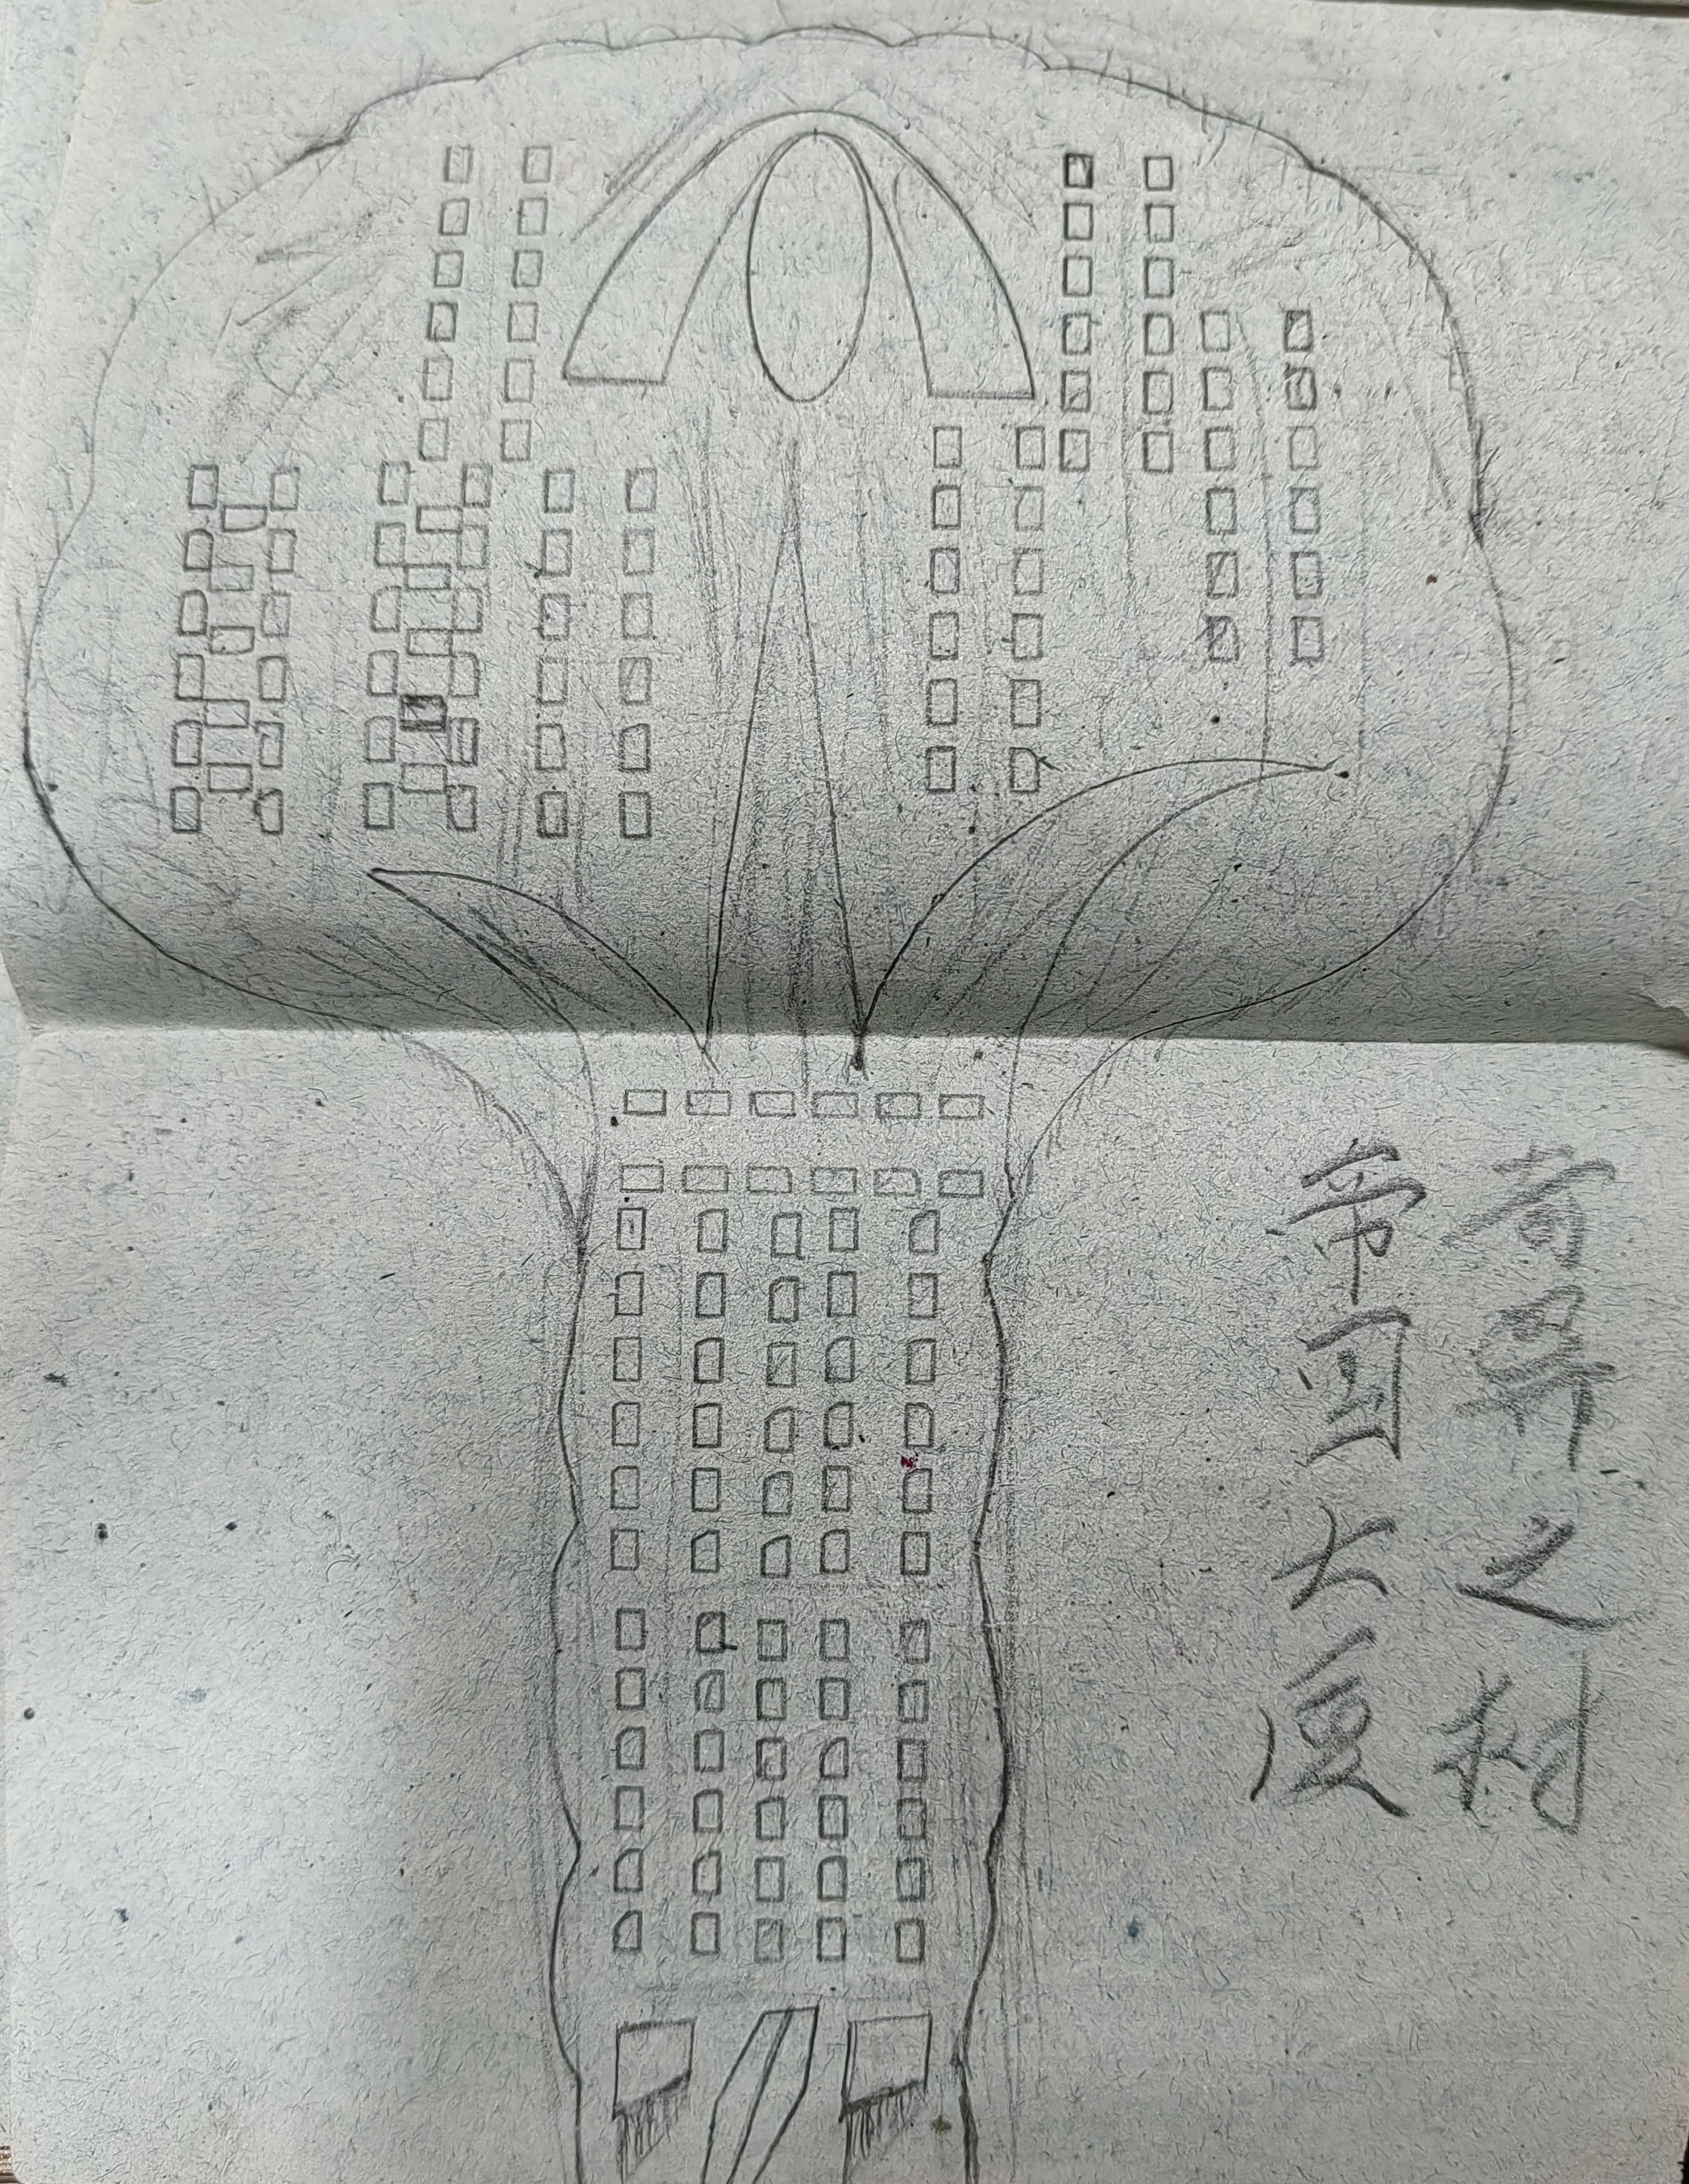 奇异之树
帝国大厦